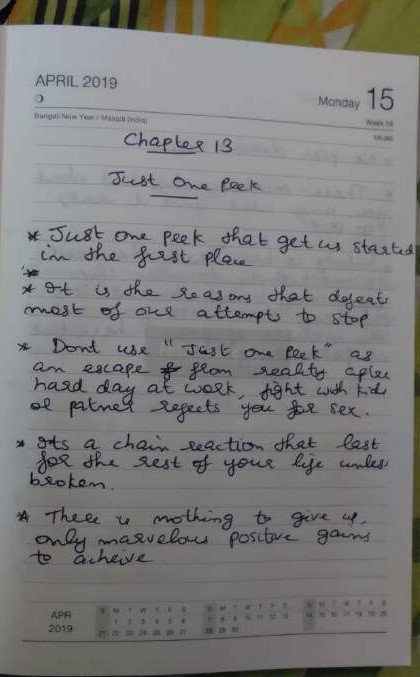 APRIL 2019
Monday 15
Bengali New Year / Mesadi (India)
Week 16
Chapter 13
Just One Peek
* Just one peek that get us started
in the first place
*
* It is the reasons that defeats
most of our attempts to stop
* Dont use "Just one Peek" as
an escape from reality after
hard day at work, fight with kids
or patner rejects you for sex.
* Its a chain reaction that last
for the rest of your life unless
broken.
* There is nothing to give up,
only marvelous positive gains
to acheive
APR
2019
S M T W T F S
1 2 3 4 5 6
21 22 23 24 25 26 27
S M T W T F S
7 8 9 10 11 12 13
28 29 30
S M T W T F S
14 15 16 17 18 19 20